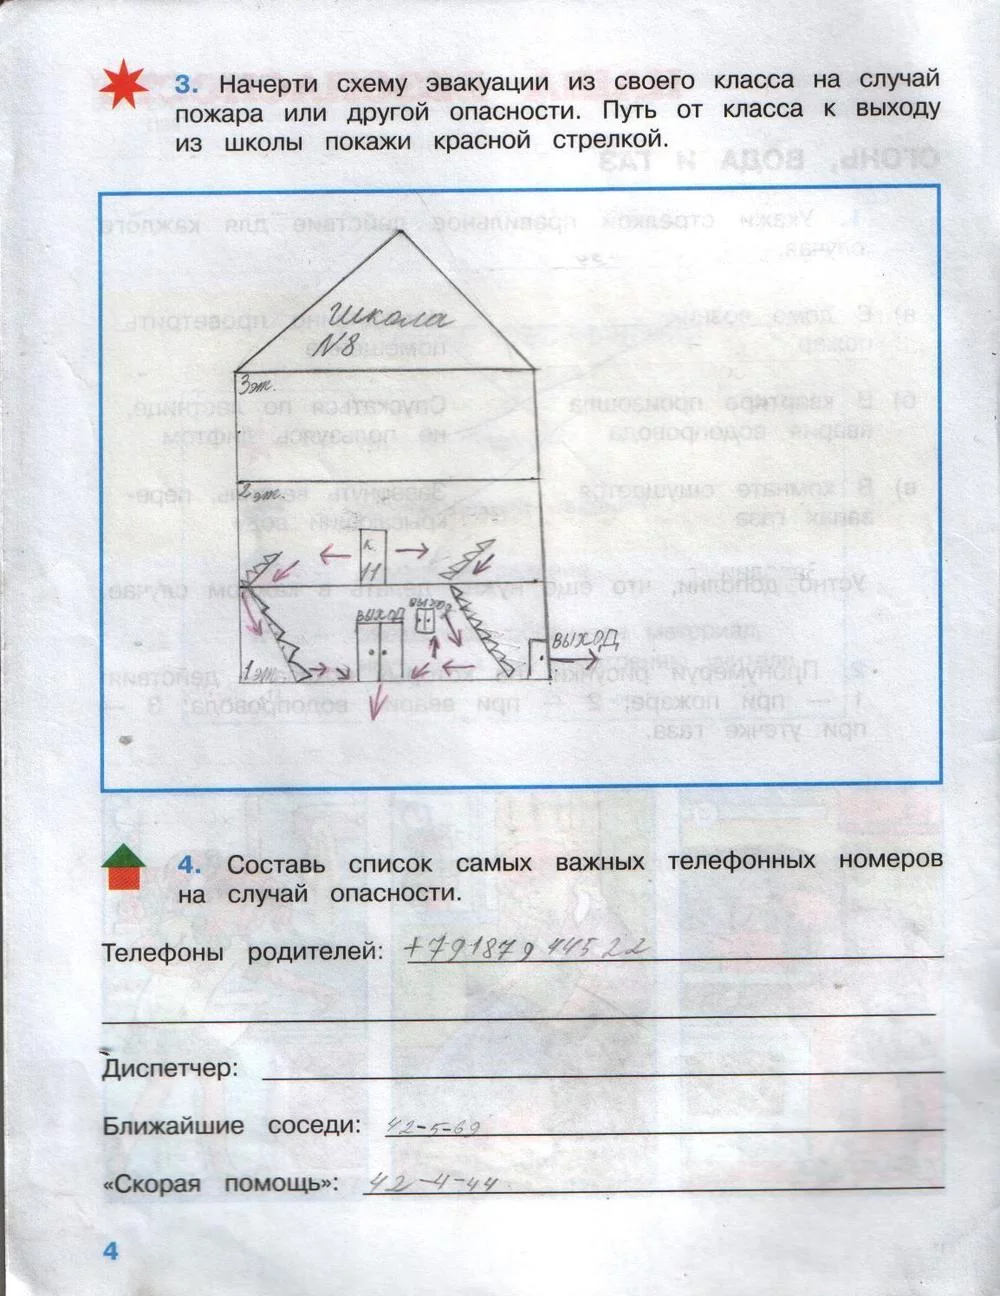 3. Начерти схему эвакуации из своего класса на случай
пожара или другой опасности. Путь от класса к выходу
из школы покажи красной стрелкой.
Школа
N8
3 эт.
2 эт.
К.
11
ВЫХОД
ВЫХОД
ВЫХОД
1 эт.
4. Составь список самых важных телефонных номеров
на случай опасности.
Телефоны родителей: +79187944522
Диспетчер:
Ближайшие соседи: 42-5-69
«Скорая помощь»: 42-4-44
4